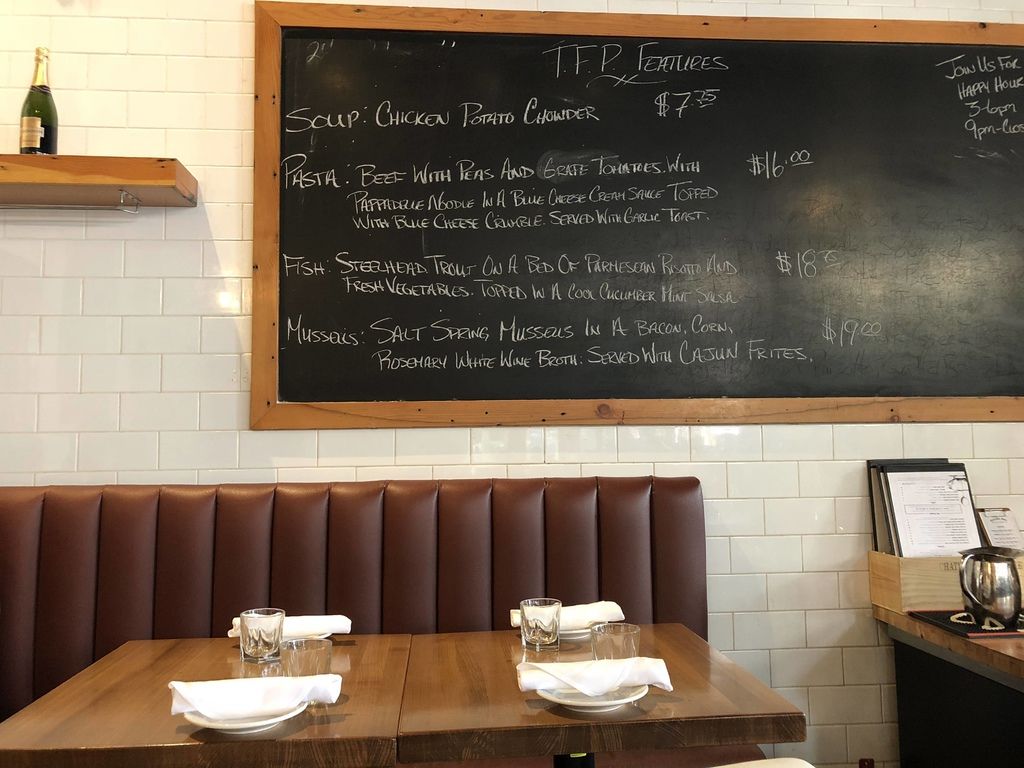 T.F.P. FEATURES
SOUP: CHICKEN POTATO CHOWDER $7.25
PASTA: BEEF WITH PEAS AND GRAPE TOMATOES. WITH $16.00
PAPPADELLE NOODLE IN A BLUE CHEESE CREAM SAUCE TOPPED
WITH BLUE CHEESE CRUMBLE. SERVED WITH GARLIC TOAST.
FISH: STEELHEAD TROUT ON A BED OF PARMESEAN RISOTTO AND $18
FRESH VEGETABLES. TOPPED IN A COOL CUCUMBER MINT SALSA
MUSSELS: SALT SPRING MUSSELS IN A BACON, CORN, $19.00
ROSEMARY WHITE WINE BROTH. SERVED WITH CAJUN FRITES.
JOIN US FOR
HAPPY HOUR
3-6pm
9pm-